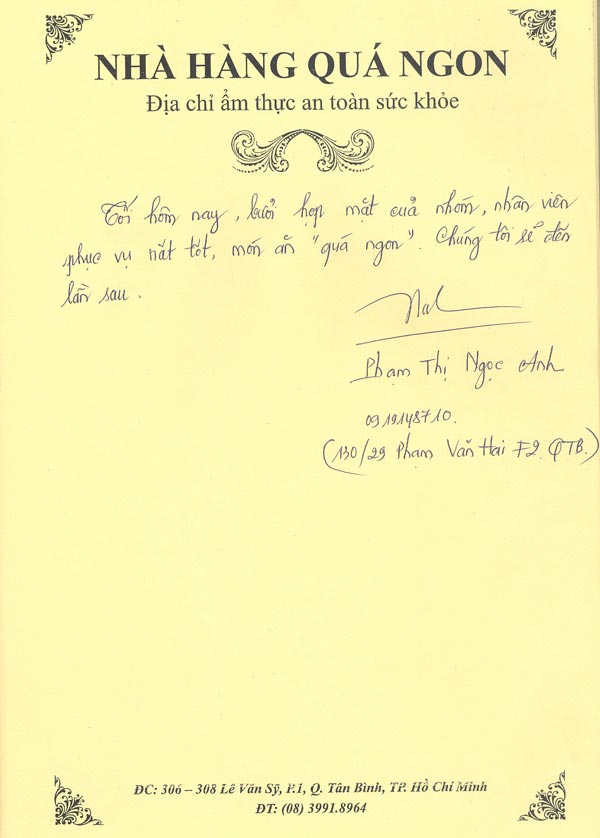 NHÀ HÀNG QUÁ NGON
Địa chỉ ẩm thực an toàn sức khỏe
Tối hôm nay, buổi họp mặt của nhóm, nhân viên
phục vụ rất tốt, món ăn "quá ngon". Chúng tôi sẽ đến
lần sau.
Phạm Thị Ngọc Anh
0919148710.
(130/29 Phạm Văn Hai F2 QTB.)
ĐC: 306 – 308 Lê Văn Sỹ, P.1, Q. Tân Bình, TP. Hồ Chí Minh
ĐT: (08) 3991.8964